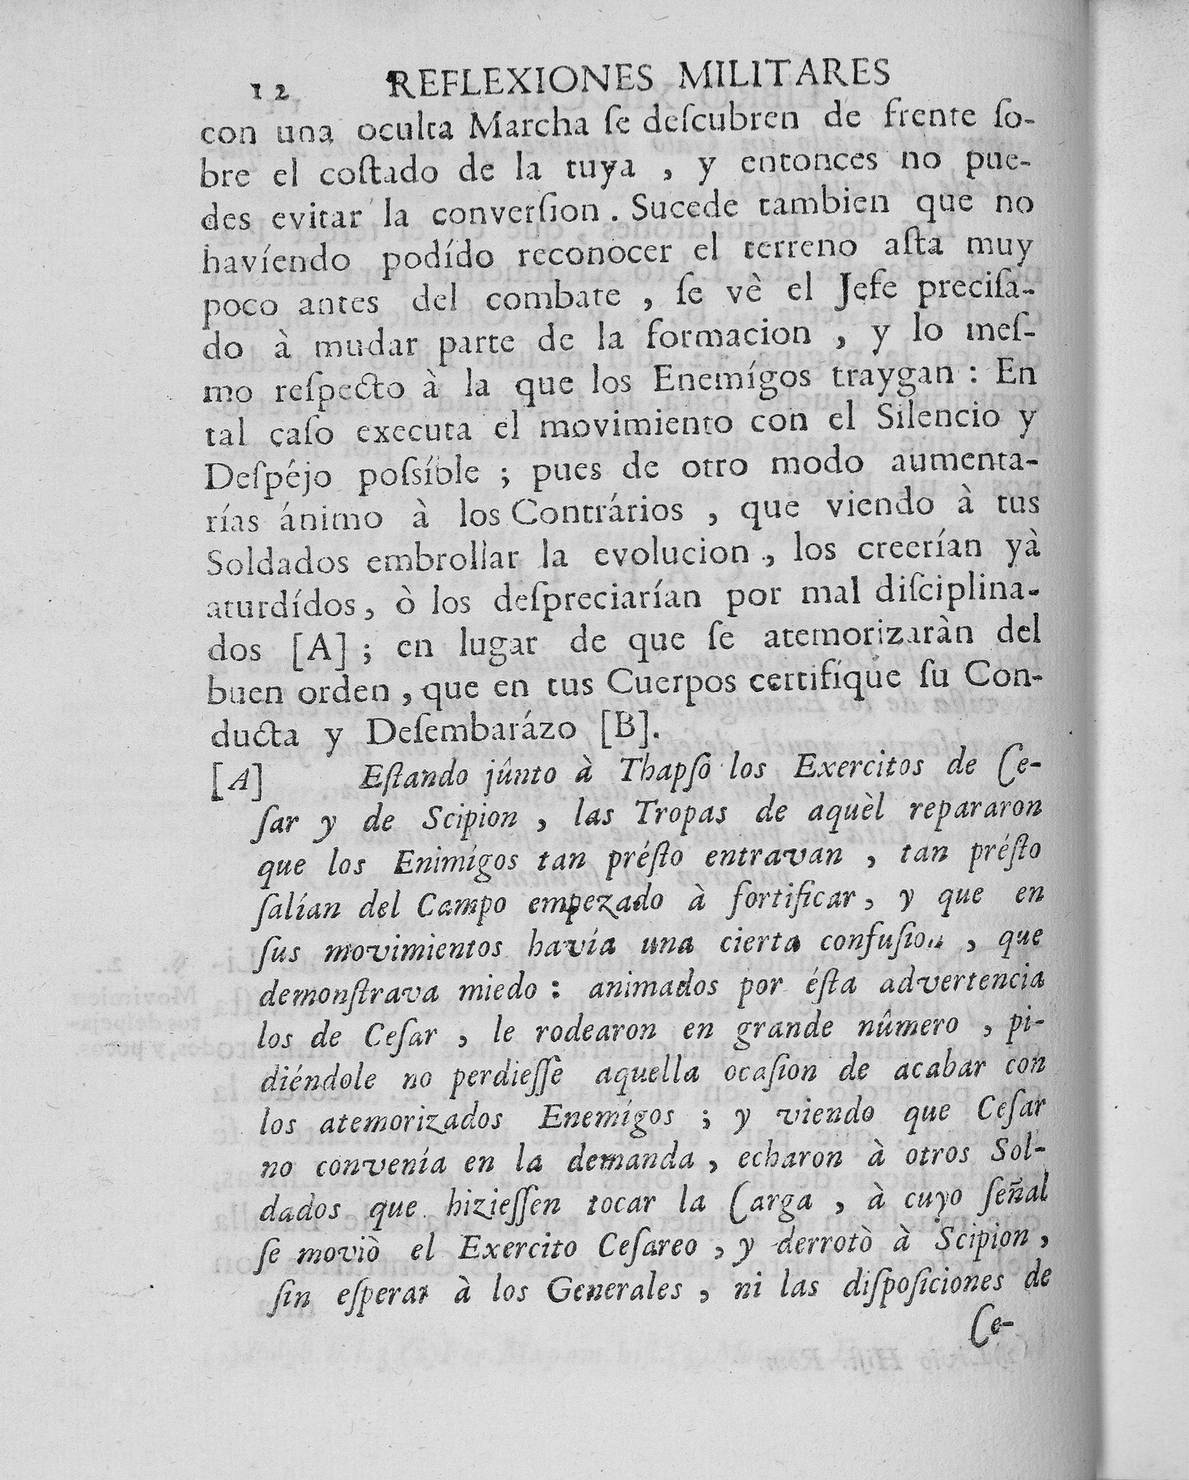 12 REFLEXIONES MILITARES
con una oculta Marcha ſe deſcubren de frente ſo-
bre el coſtado de la tuya , y entonces no pue-
des evitar la converſion . Sucede tambien que no
havíendo podído reconocer el terreno aſta muy
poco antes del combate , ſe vè el Jefe preciſa-
do à mudar parte de la formacion , y lo meſ-
mo reſpecto à la que los Enemígos traygan : En
tal caſo executa el movimiento con el Silencio y
Deſpéjo poſsíble ; pues de otro modo aumenta-
rías ánimo à los Contrários , que viendo à tus
Soldados embrollar la evolucion , los creerían yà
aturdídos, ò los deſpreciarían por mal diſciplina-
dos [A] ; en lugar de que ſe atemorizaràn del
buen orden , que en tus Cuerpos certifíque ſu Con-
ducta y Deſembarázo [B].
[A] Eſtando jûnto à Thapſo los Exercitos de Ce-
ſar y de Scipion , las Tropas de aquèl repararon
que los Enimígos tan préſto entravan , tan préſto
ſalían del Campo empezado à fortificar, y que en
ſus movimientos havía una cierta confuſion , que
demonſtrava miedo : animados por éſta advertencia
los de Ceſar , le rodearon en grande nûmero , pi-
diéndole no perdieſſe aquella ocaſion de acabar con
los atemorizados Enemígos ; y viendo que Ceſar
no convenía en la demanda , echaron à otros Sol-
dados que hizieſſen tocar la Carga , à cuyo ſeñal
ſe moviò el Exercito Ceſareo , y derrotò à Scipion ,
ſin eſperar à los Generales , ni las diſpoſiciones de
Ce-